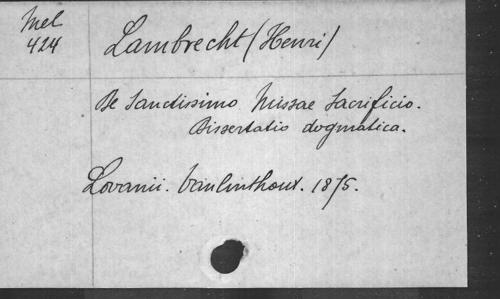 Mel
424
Lambrecht (Henri)
De Sanctissimo Missae Sacrificio.
Dissertatio dogmatica.
Lovanii. Vanlinthout. 1875.